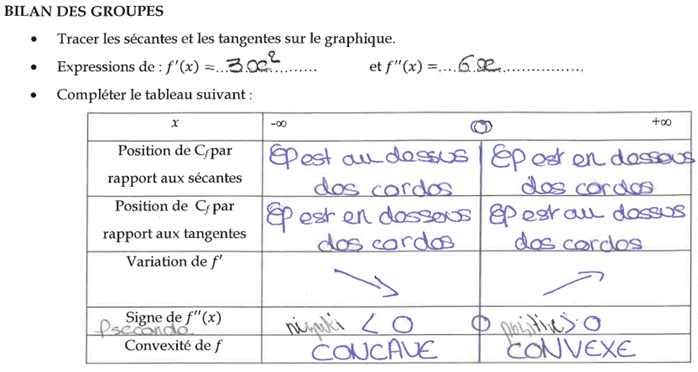 BILAN DES GROUPES
• Tracer les sécantes et les tangentes sur le graphique.
• Expressions de : f'(x) =...3x².................. et f''(x) =....6x......................
• Compléter le tableau suivant :
x -∞ 0 +∞
Position de Cf par rapport aux sécantes
Cf est au dessus des cordes
Cf est en dessous des cordes
Position de Cf par rapport aux tangentes
Cf est en dessous des cordes
Cf est au dessus des cordes
Variation de f'
Signe de f''(x)
f seconde
< 0
0
positive > 0
Convexité de f
CONCAVE
CONVEXE